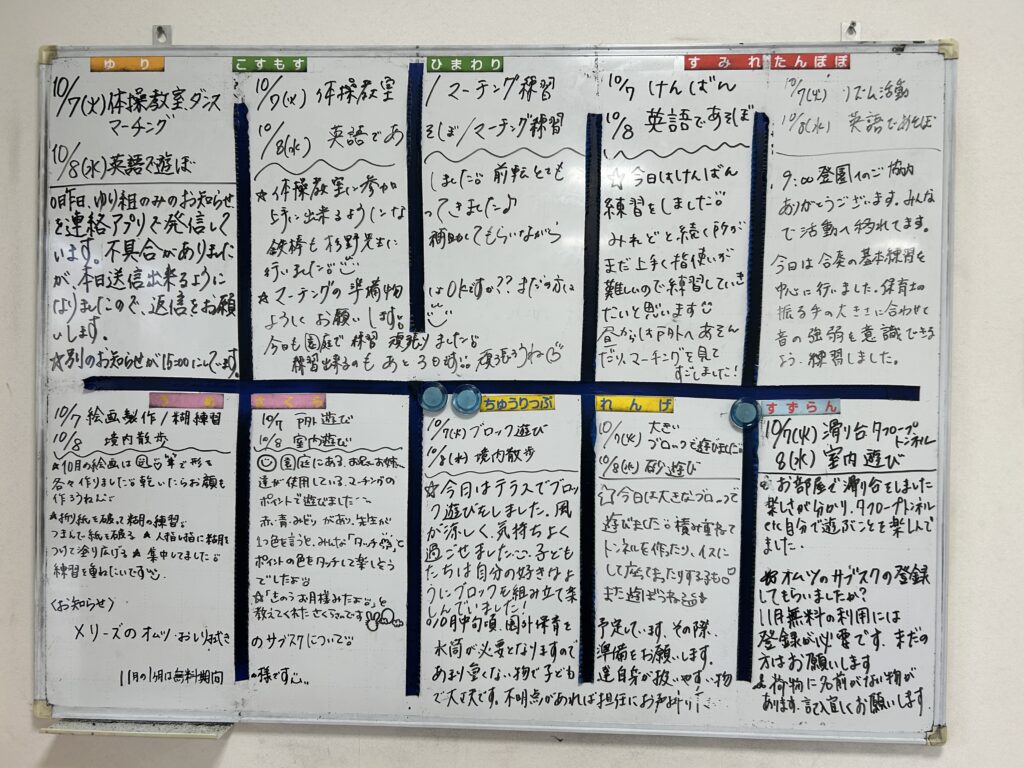 ゆり
10/7(火)体操教室、ダンス
マーチング
10/8(水)英語で遊ぼ
昨日、ゆり組のみのお知らせ
を連絡アプリで発信して
います。不具合がありました
が、本日送信出来るように
なりましたので、返信をお願
いします。
☆別のお知らせが15:00にします。
こすもす
10/7(火) 体操教室
10/8(水) 英語であ
☆体操教室に参加
上手に出来るようにな
鉄棒も杉野先生に
行いました
☆マーチングの準備物
ようしく お願いします。
今日も園庭で練習 頑張りました
練習出来るのも あと3日です 頑張ろうね
ひまわり
/ マーチング練習
そぼ/マーチング練習
しました 前転とても
ってきました♪
補助してもらいながら
はOKですか?? まだの方は
すみれ
10/7 けんばん
10/8 英語であそぼ
☆今日はけんばん
練習をしました
みれどと続く所が
まだ上手く指使いが
難しいので練習していき
たいと思います
昼からは戸外へあそん
だり、マーチングを見て
すごしました!
たんぽぽ
10/7(火) リズム活動
10/8(水) 英語であそぼ
9:00登園へのご協力
ありがとうございます。みんな
で活動へ移れてます。
今日は合奏の基本練習を
中心に行いました。保育士の
振る手の大きさに合わせて
音の強弱を意識できる
よう、練習しました。
うめ
10/7 絵画製作/糊練習
10/8 境内散歩
★10月の絵画は で形を
各々作りました 乾いたらお顔も
作ろうねん
★折り紙を破って糊の練習
つまんで紙を破る ★人指し指に糊を
つけて塗り広げる ★集中してました
練習を重ねたいです
〈お知らせ〉
メリーズのオムツ・おしり拭き
11月の1ヶ月は無料期間
さくら
10/7 戸外遊び
10/8 室内遊び
園庭にある、お兄さんお姉さん
達が使用している、マーチングの
ポイントで遊びました
赤・青・みどりがあり、先生が
1つ色を言うと、みんな「タッチ」と
ポイントの色をタッチして楽しそう
でしたよ
☆「きのうお月様みたよ」と
教えてくれたさくらっこです
のサブスクについて
様です
ちゅうりっぷ
10/7(火) ブロック遊び
10/8(水) 境内散歩
☆今日はテラスでブロッ
ク遊びをしました。風
が涼しく、気持ちよく
過ごせました 子ども
たちは自分の好きなよ
うにブロックを組み立て楽
しんでいました!
10月中旬頃、園外保育を
水筒が必要となりますので
あまり重くない物で子ども
で大丈夫です。不明点があれば担任にお声掛け
れんげ
10/7(火) 大きい
ブロックで遊びました
10/8(水) 砂遊び
今日は大きなブロックで
遊びました 積み重ねて
トンネルを作ったり、イスに
して座ってまったりする子も
また遊ぼうね
予定しています。その際、
準備をお願いします。
達自身が扱いやすい物
すずらん
10/7(火) 滑り台 タフロープ
トンネル
8(水) 室内遊び
お部屋で滑り台をしました
楽しさが分かり、タフロープトンネル
くに自分で遊ぶことを楽しんで
ました。
オムツのサブスクの登録
してもらいましたか?
11月無料の利用には
登録が必要です。まだの
方はお願いします
荷物に名前がない物が
あります。記入宜しくお願いします